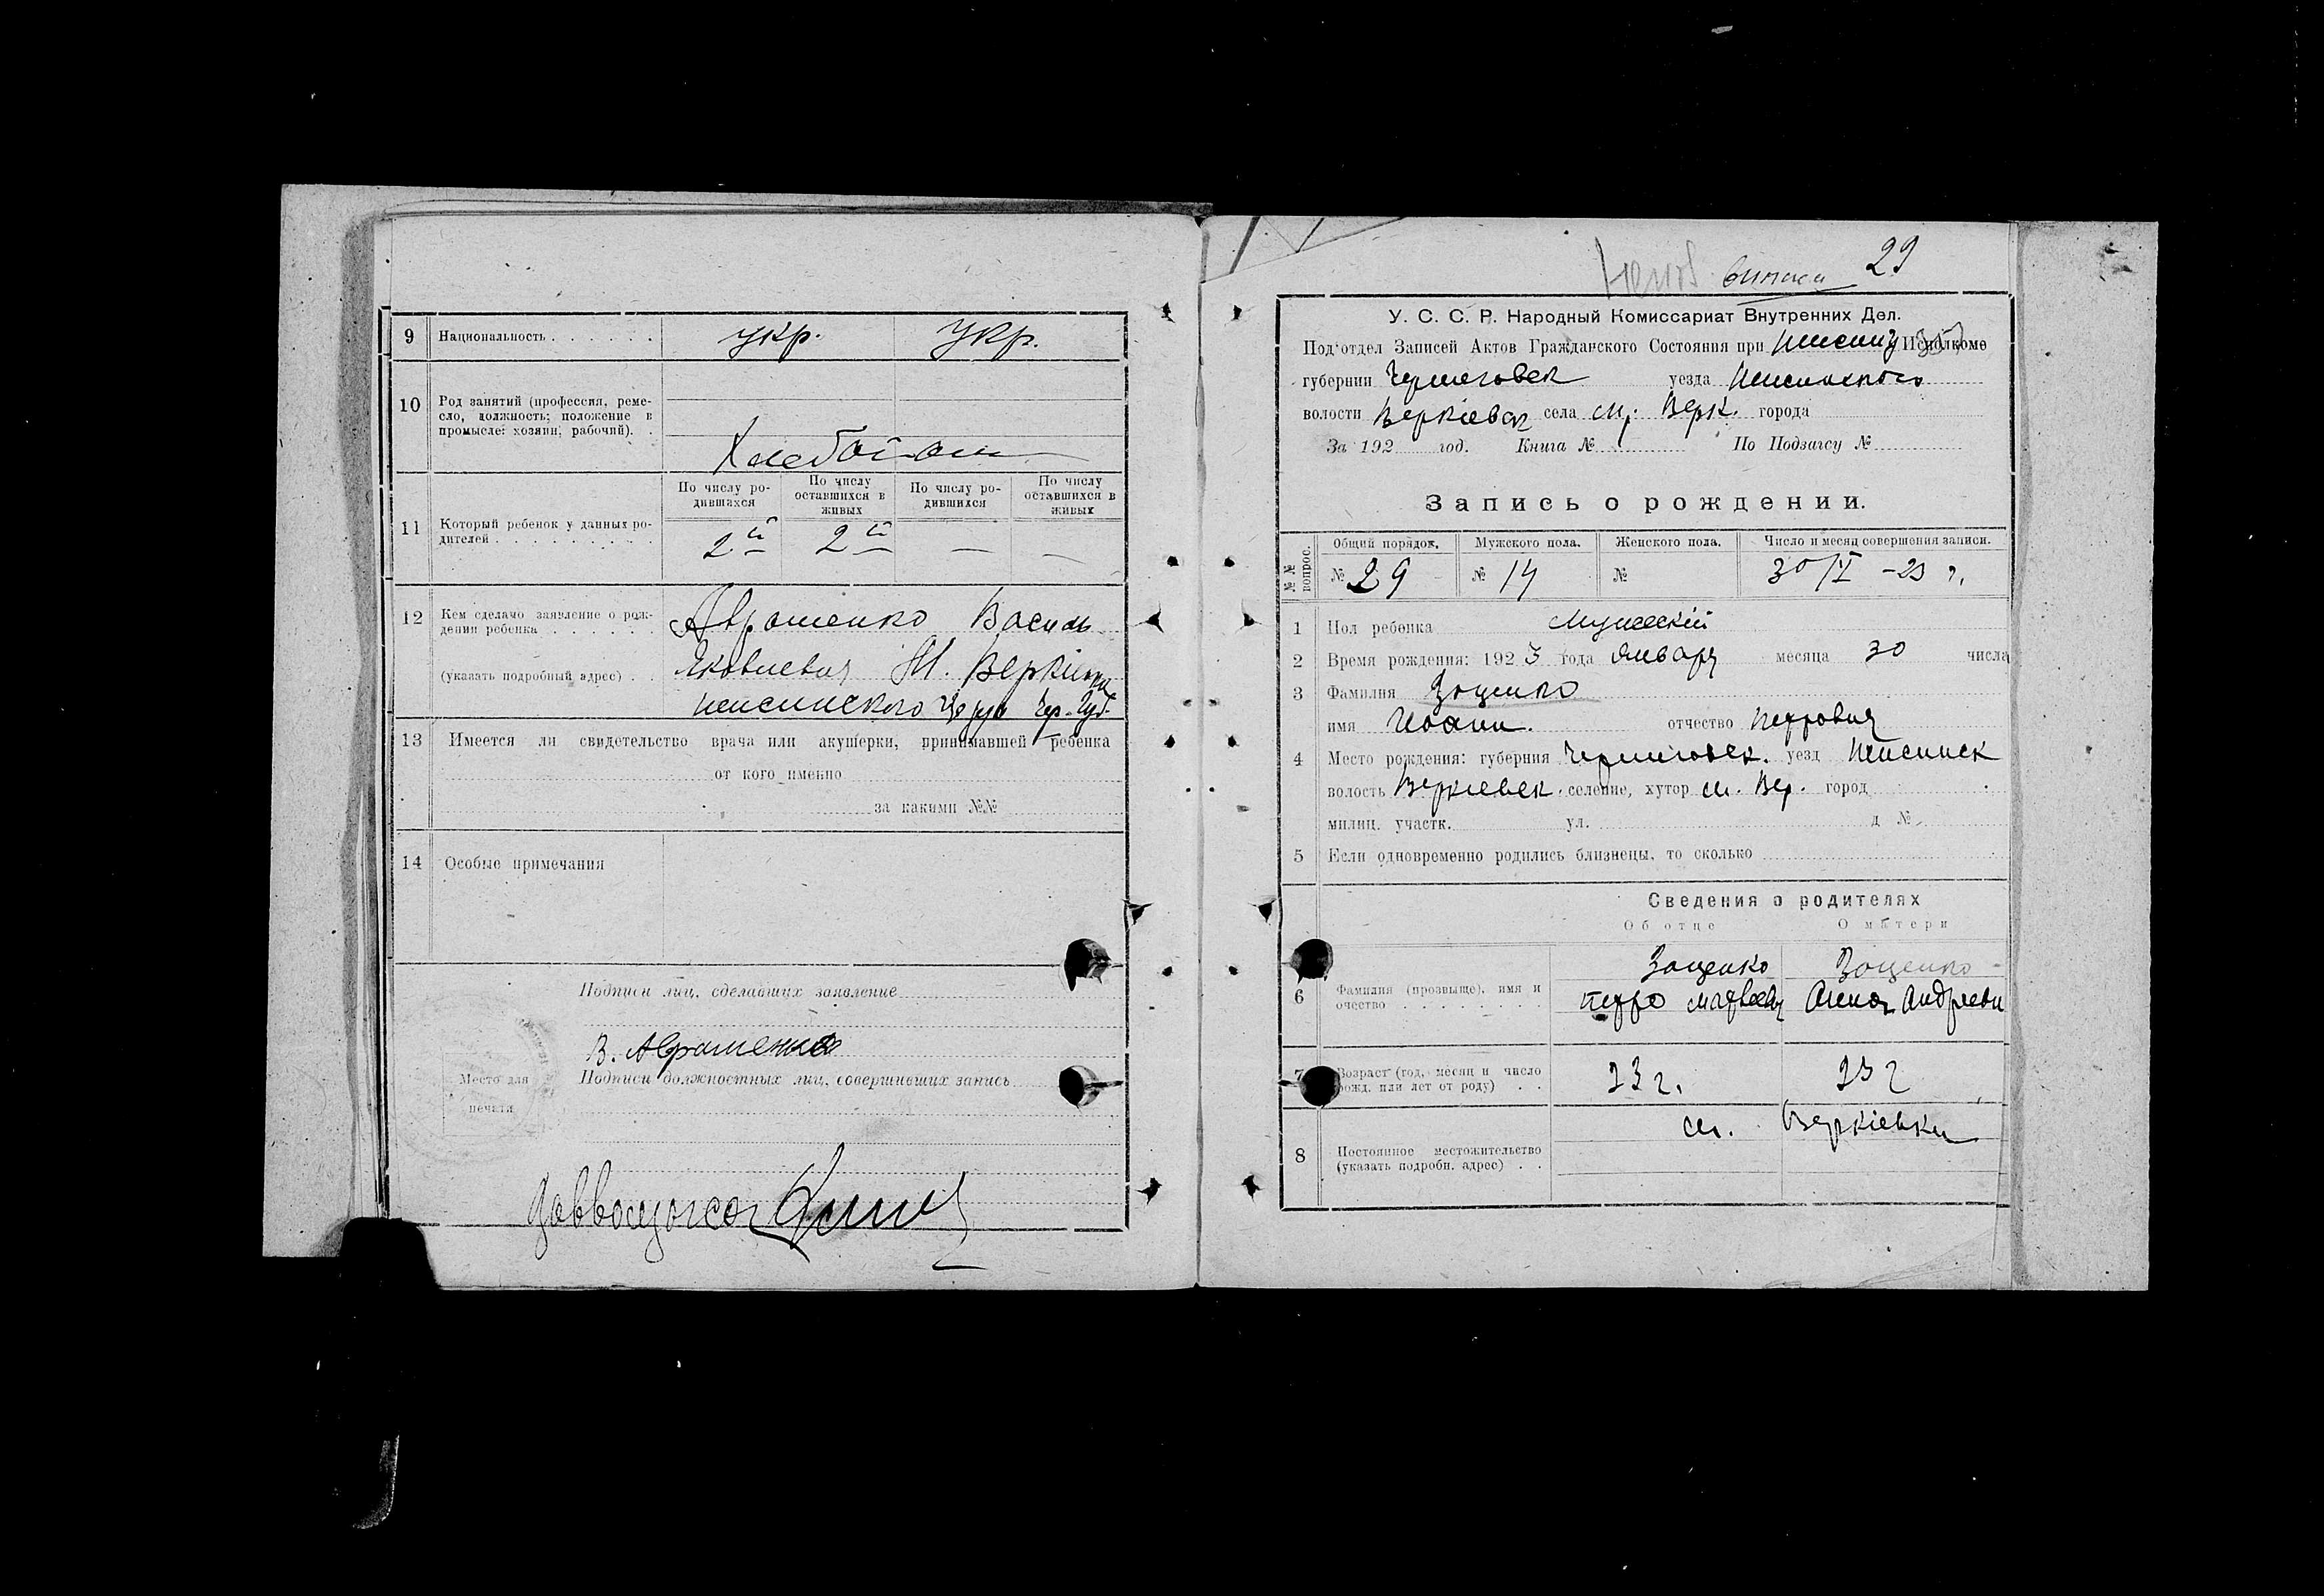 9 Национальность . . . . . . укр. укр.
10 Род занятий (профессия, реме-
сло, должность; положение в
промысле: хозяин, рабочий). .
Хлебопаш
11 Который ребенок у данных ро-
дителей . . . . . . . . . .
По числу ро-
дившахся
По числу
оставшихся в
живых
По числу ро-
дившихся
По числу
оставшихся в
живых
2й 2й — —
12 Кем сделано заявление о рож-
дении ребенка . . . . . . Авраменко Василь
(указать подробный адрес) . . Яковлевич М. Веркіевки
Нежинского Уезда Чер. Губ.
13 Имеется ли свидетельство врача или акушерки, принимавшей ребенка
от кого именно
за какими №№
14 Особые примечания
Подписи лиц, сделавших заявление
В. Авраменко
Подписи должностных лиц, совершивших запись
Место для
печати
29
У. С. С. Р. Народный Комиссариат Внутренних Дел.
Под'отдел Записей Актов Гражданского Состояния при Исполкоме
губернии Черниговск уезда Неженского
волости Веркіевск села м. Верк. города
За 192 год. Книга № По Подзагсу №
Запись о рождении.
№№ вопрос.
Общий порядок. Мужского пола. Женского пола. Число и месяц совершения записи.
№ 29 № 14 № 30/I –23 г.
1 Пол ребенка Мужескій
2 Время рождения: 1923 года Январь месяца 30 числа
3 Фамилия Зоценко
имя Иоанн. отчество Петрович
4 Место рождения: губерния Черниговск. уезд Неженск
волость Веркіевск. селение, хутор м. Вер. город
милиц. участк. ул. д №
5 Если одновременно родились близнецы, то сколько
Сведения о родителях
Об отце О матери
Зоценко Зоценко
6 Фамилия (прозвище), имя и
очество . . . . . . . . Петро Матвеевич Анна Андреевн
7 Возраст (год, месяц и число
рожд. или лет от роду) . . 23 г. 23 г
м. Веркіевки
8 Постоянное местожительство
(указать подробн. адрес) . .